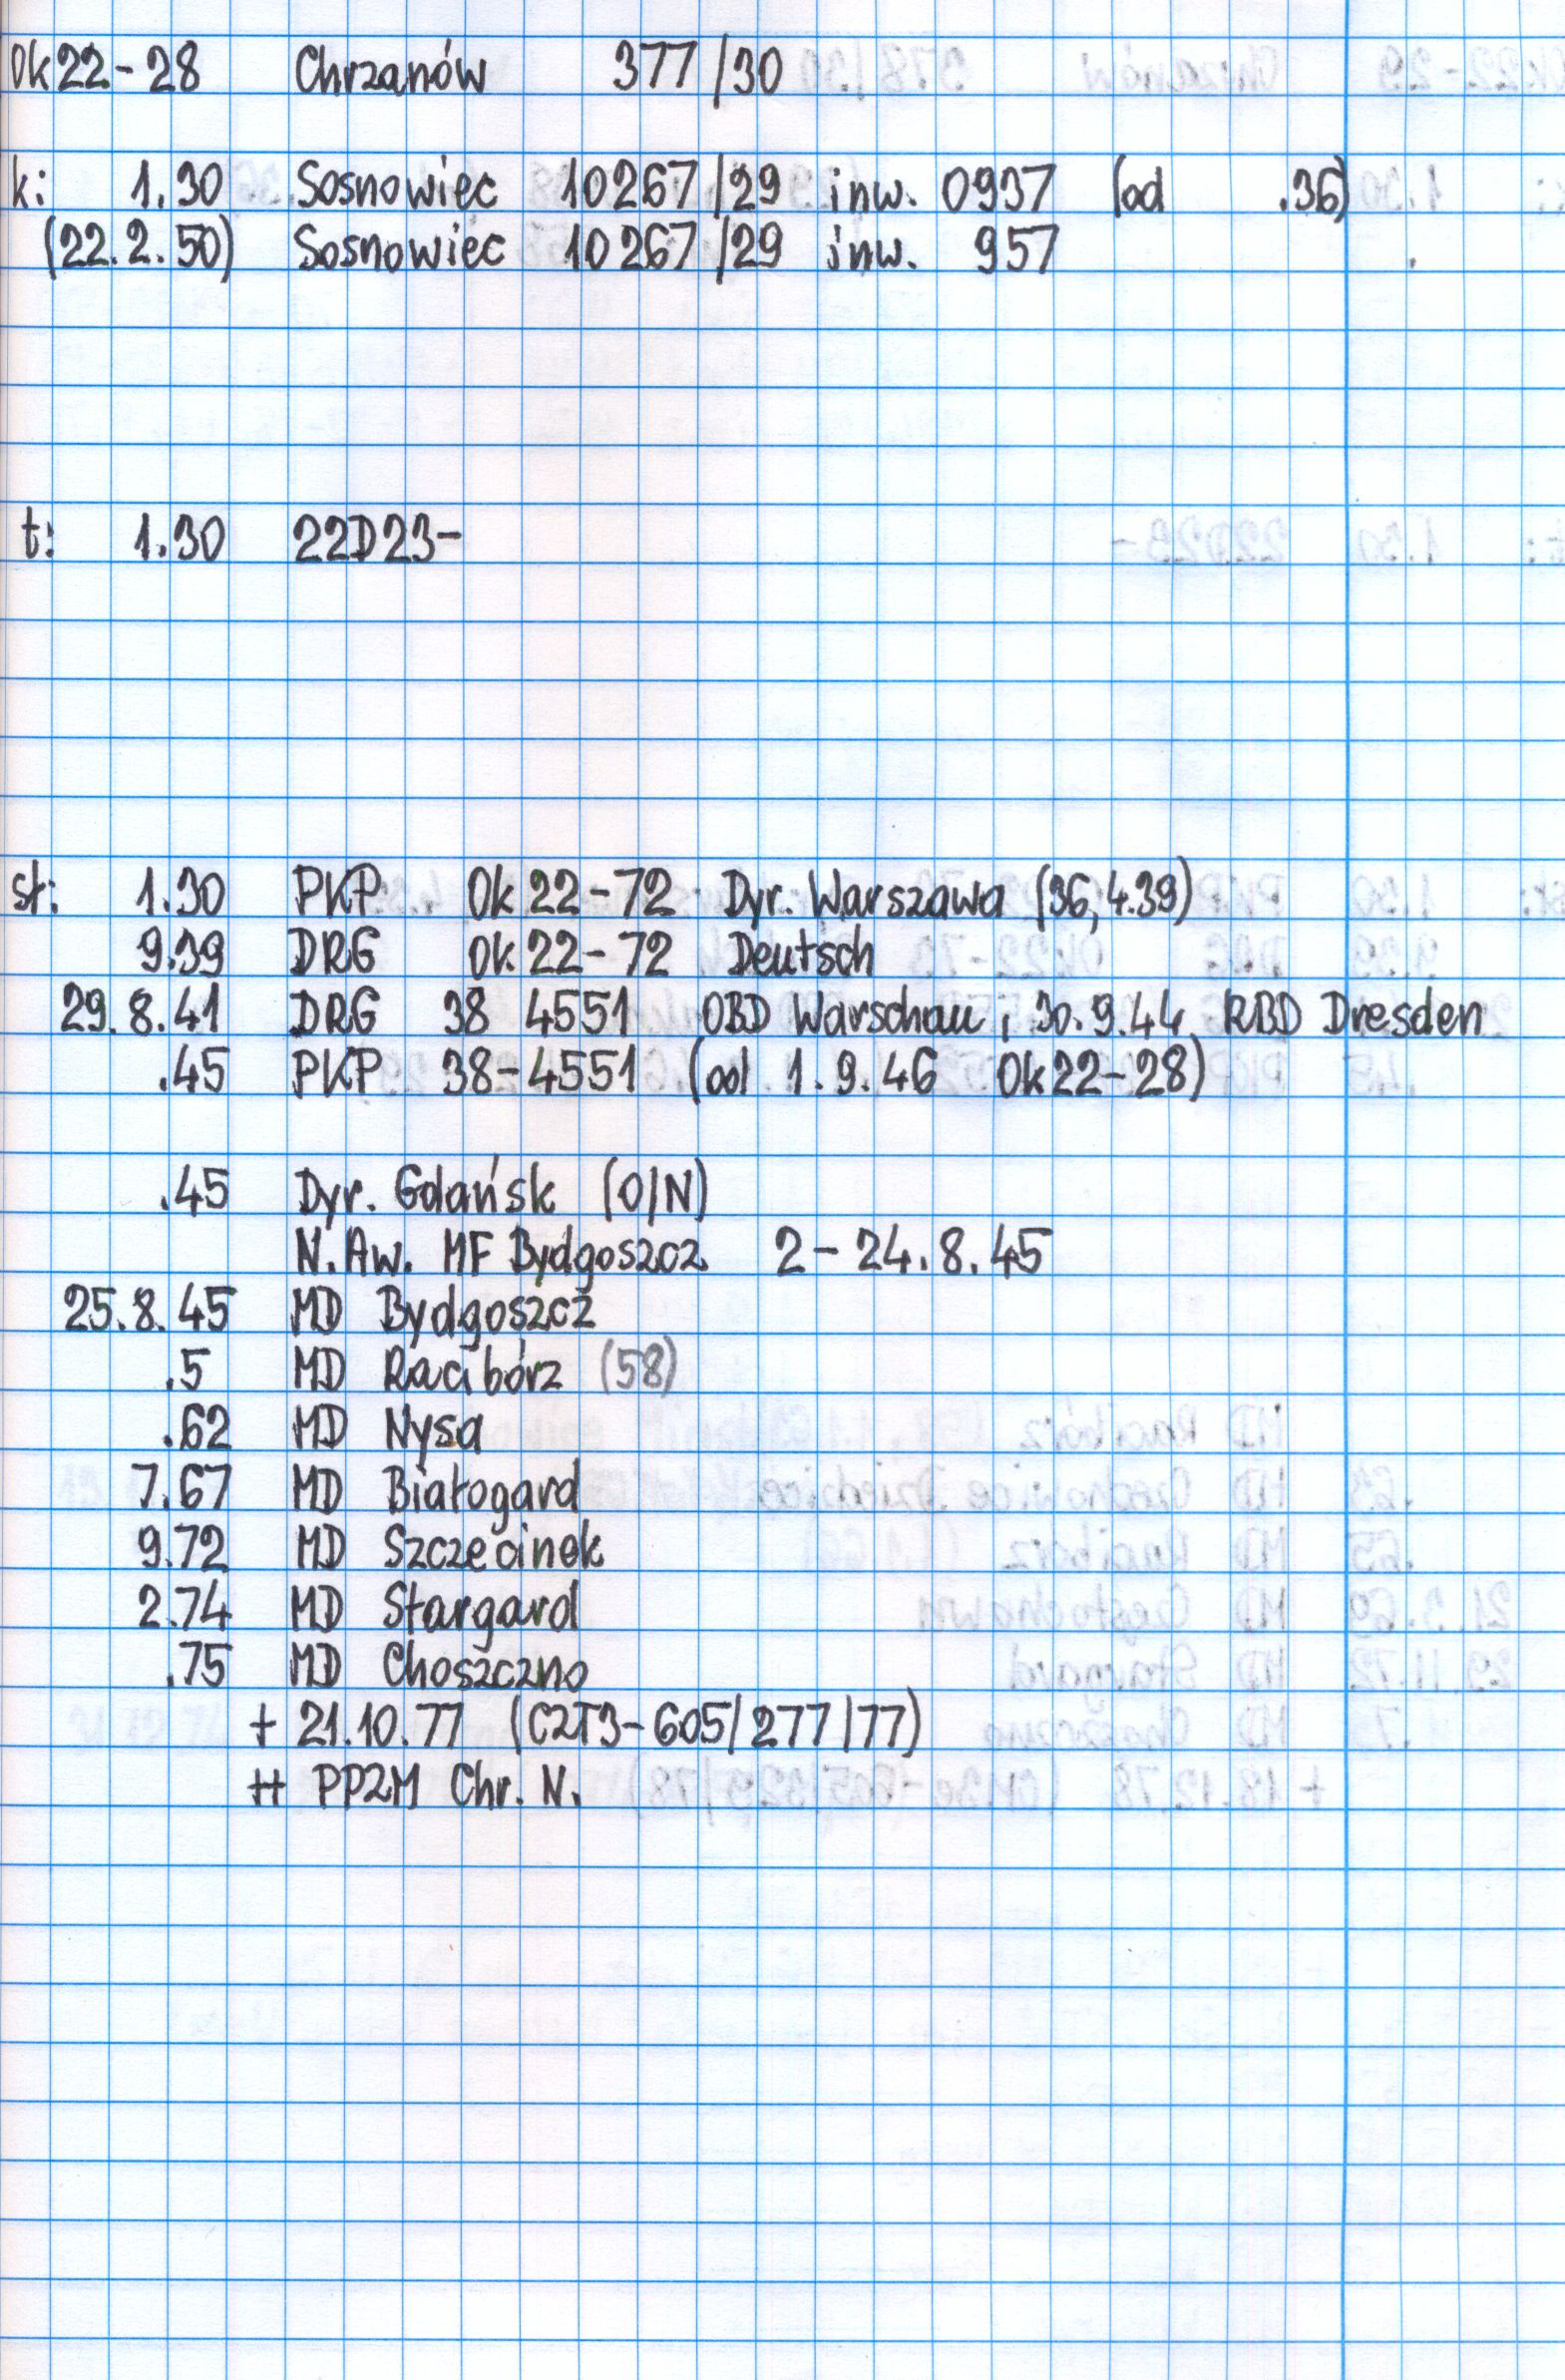 Ok22-28 Chrzanów 377/30
k: 1.30 Sosnowiec 10267/29 inw. 0937 (od .36)
(22.2.50) Sosnowiec 10267/29 inw. 957
t: 1.30 22D23-
st: 1.30 PKP Ok22-72 Dyr. Warszawa (36, 4.39)
9.39 DRG Ok22-72 Deutsch
29.8.41 DRG 38 4551 OBD Warschau, 30.9.44 RBD Dresden
.45 PKP 38-4551 (od 1.9.46 Ok22-28)
.45 Dyr. Gdańsk (O/N)
N.Aw. MF Bydgoszcz 2-24.8.45
25.8.45 MD Bydgoszcz
.5 MD Racibórz (58)
.62 MD Nysa
7.67 MD Białogard
9.72 MD Szczecinek
2.74 MD Stargard
.75 MD Choszczno
+ 21.10.77 (CZT3-605/277/77)
++ PPZM Chr. N.